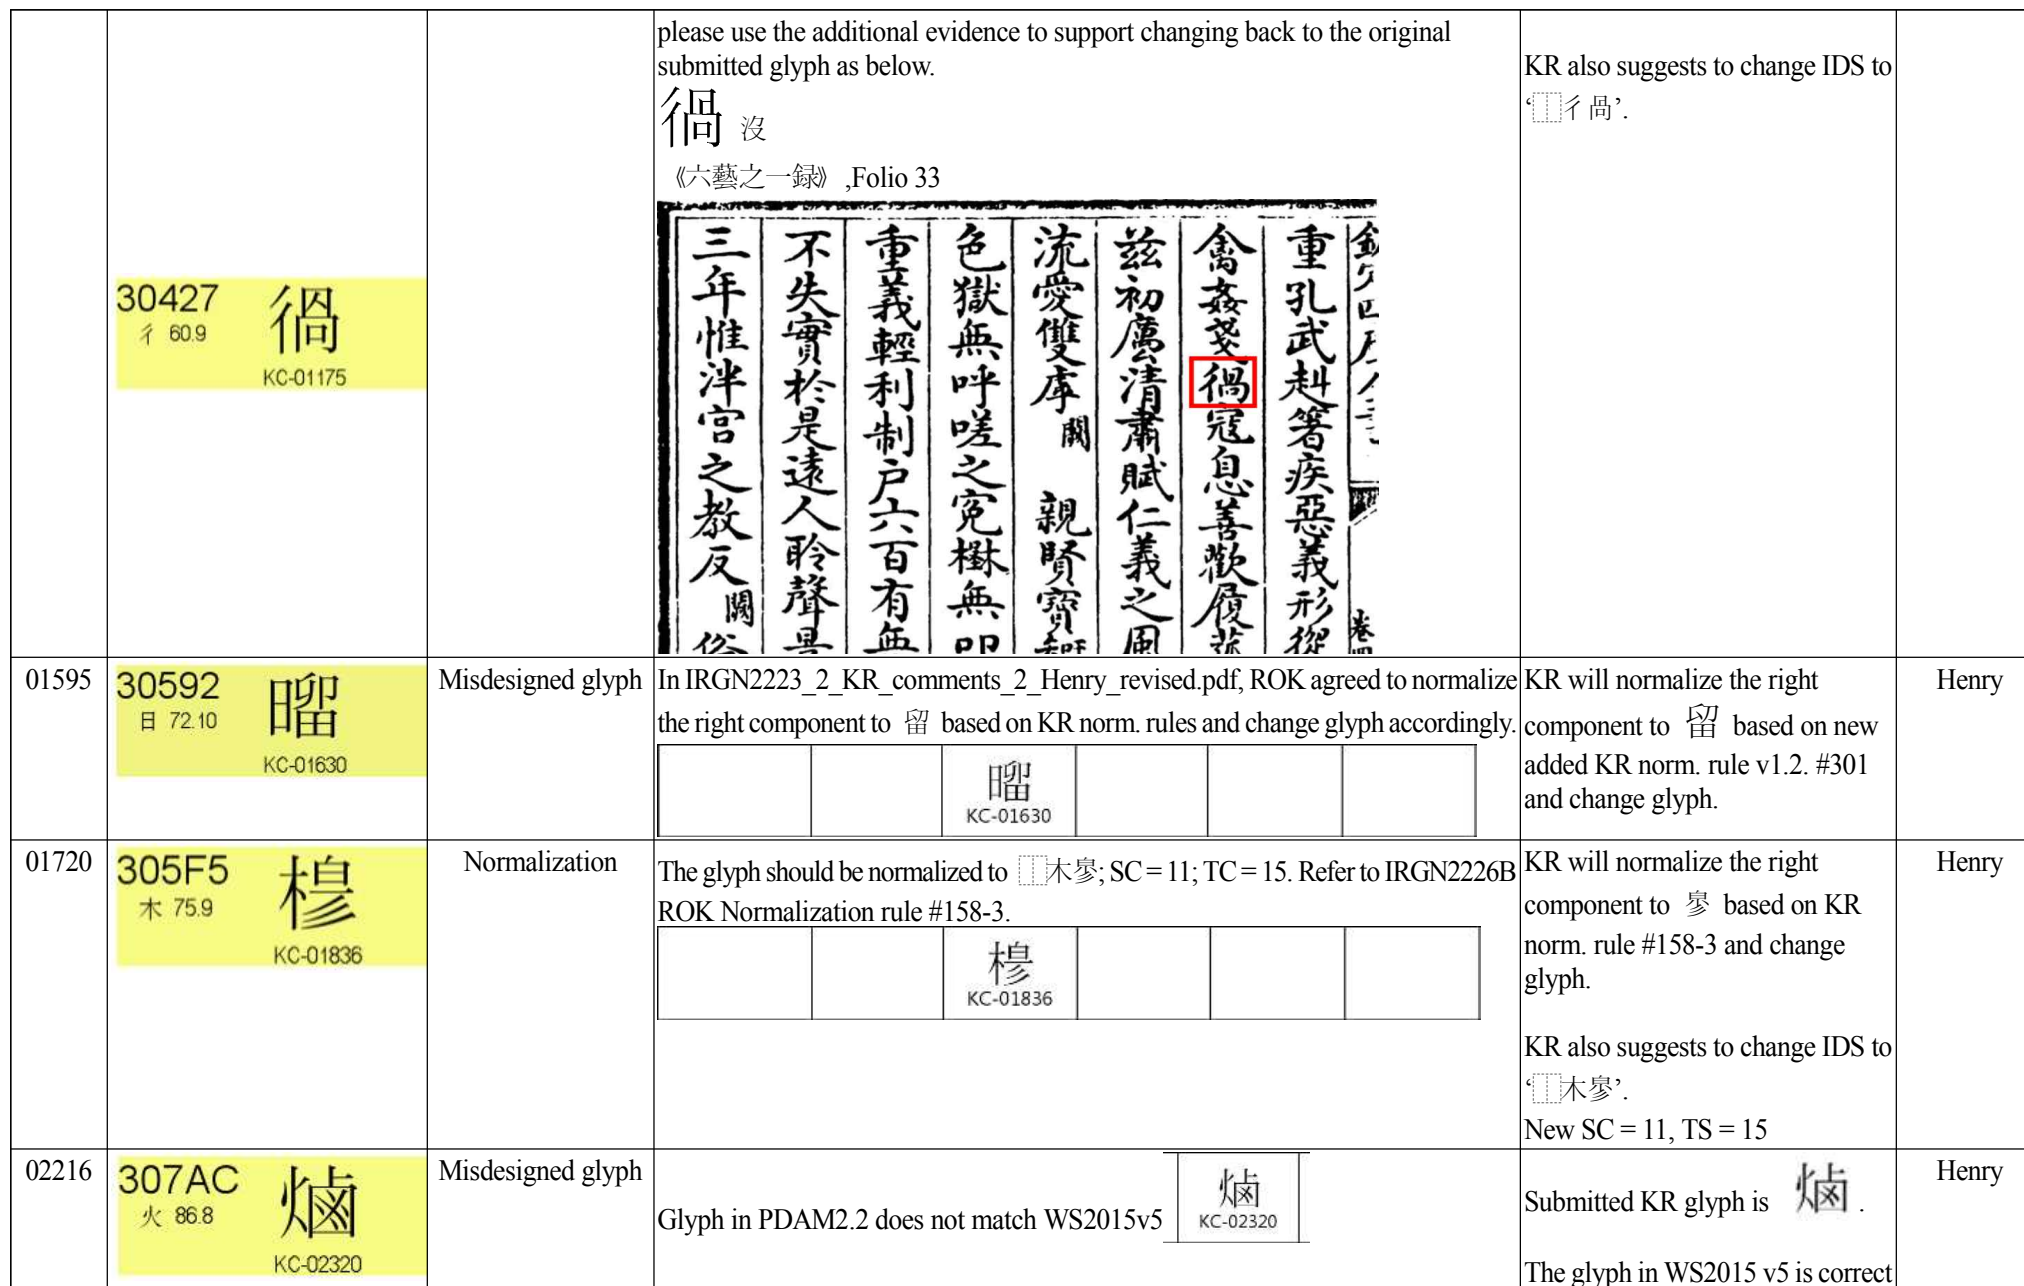 please use the additional evidence to support changing back to the original
submitted glyph as below.
𰐧 沒
《六藝之一録》 ,Folio 33
KR also suggests to change IDS to
‘⿰彳咼’.
30427 𰐧
彳 60.9
KC-01175
重孔武赳箸疾惡義形從
禽姦戔𰐧冦息善歡履
茲初厲清肅賦仁義之風
流愛雙虖 闕 親賢寶
色獄無呼嗟之冤 無
重義輕利制户六百有無
不失實於是遠人聆聲
三年惟泮宫之教反 闕 俗
01595
30592 𰖒
日 72.10
KC-01630
Misdesigned glyph
In IRGN2223_2_KR_comments_2_Henry_revised.pdf, ROK agreed to normalize
the right component to 留 based on KR norm. rules and change glyph accordingly.
𰖒
KC-01630
KR will normalize the right
component to 留 based on new
added KR norm. rule v1.2. #301
and change glyph.
Henry
01720
305F5 𰗵
木 75.9
KC-01836
Normalization
The glyph should be normalized to ⿰木㕘; SC = 11; TC = 15. Refer to IRGN2226B
ROK Normalization rule #158-3.
𰗵
KC-01836
KR will normalize the right
component to 㕘 based on KR
norm. rule #158-3 and change
glyph.
KR also suggests to change IDS to
‘⿰木㕘’.
New SC = 11, TS = 15
Henry
02216
307AC 𰞬
火 86.8
KC-02320
Misdesigned glyph
Glyph in PDAM2.2 does not match WS2015v5
𰞬
KC-02320
Submitted KR glyph is 𰞬 .
The glyph in WS2015 v5 is correct
Henry